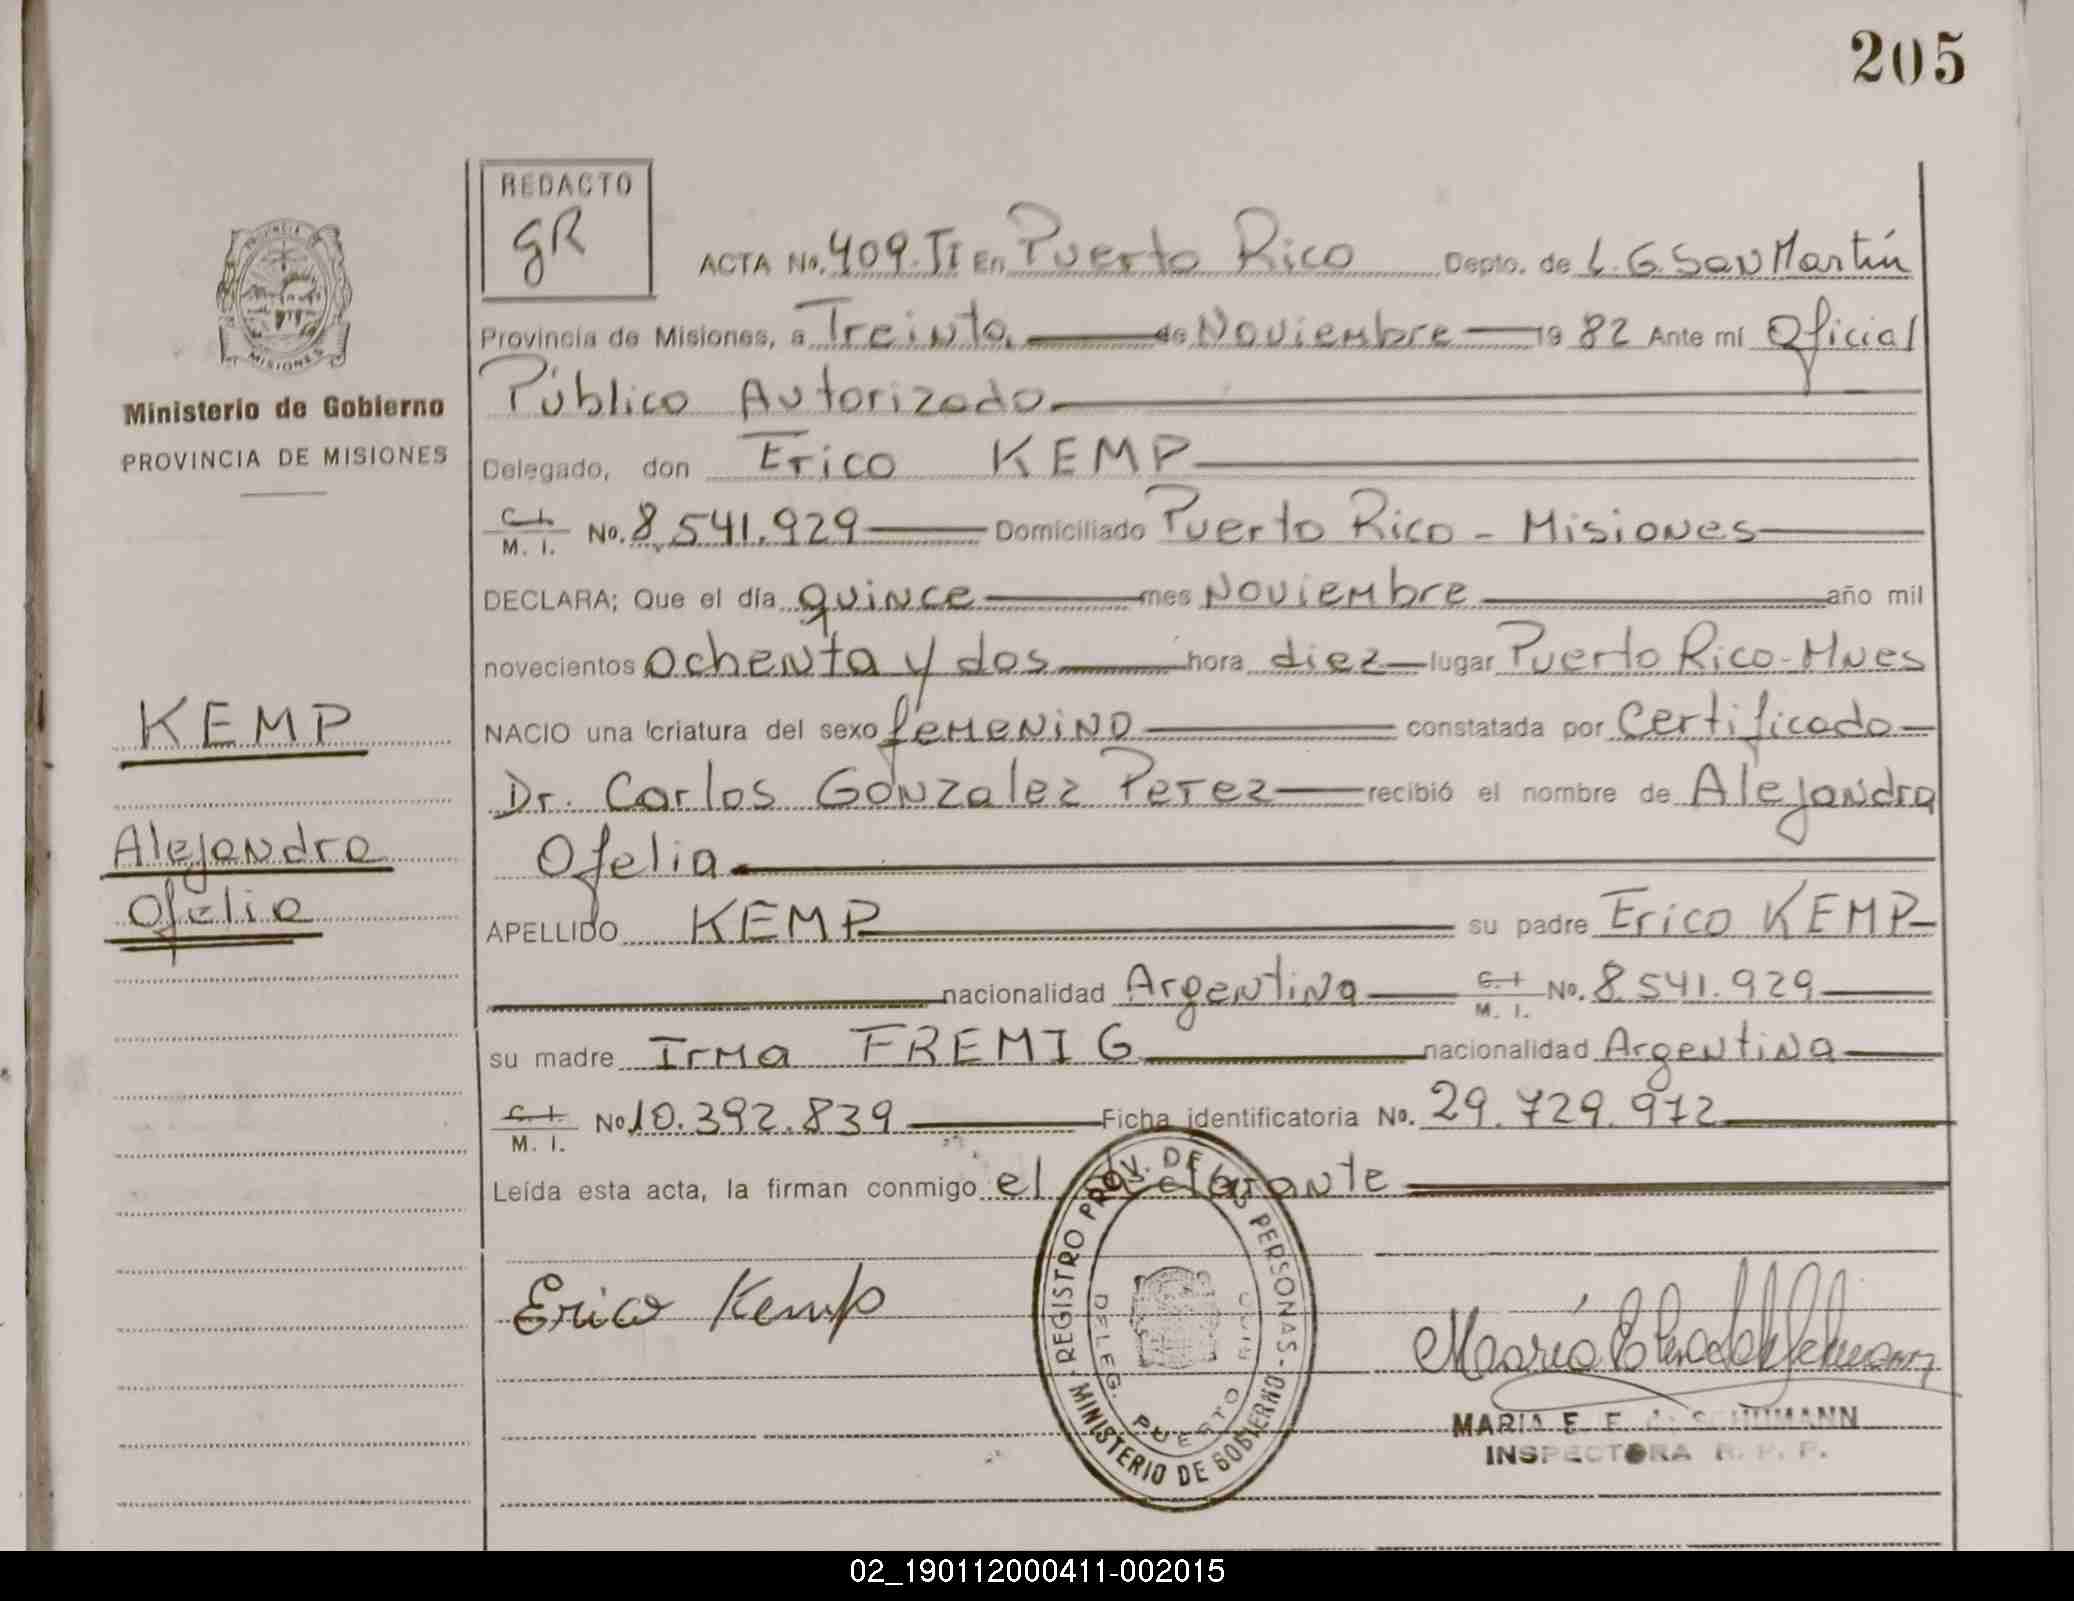 205
REDACTO
gR
ACTA No. 409. TI En Puerto Rico Depto. de L. G. San Martín
Provincia de Misiones, a Treinta de Noviembre 19 82 Ante mí Oficial
Público Autorizado
Delegado, don Erico KEMP
C. I.
M. I. No. 8.541.929 Domiciliado Puerto Rico - Misiones
DECLARA; Que el día quince mes Noviembre año mil
novecientos ochenta y dos hora diez lugar Puerto Rico-Mnes
NACIO una criatura del sexo femenino constatada por Certificado
Dr. Carlos Gonzalez Perez recibió el nombre de Alejandra
Ofelia
APELLIDO KEMP su padre Erico KEMP
nacionalidad Argentina C. I.
M. I. No. 8.541.929
su madre Irma FREMIG nacionalidad Argentina
C. I.
M. I. No 10.392.839 Ficha identificatoria No. 29.729.972
Leída esta acta, la firman conmigo el
Erico Kemp
MARIA E. F. SCHUMANN
INSPECTORA R. P. P.
REGISTRO PROV. DE LAS PERSONAS - MINISTERIO DE GOBIERNO
DELEG. PUERTO RICO
PROVINCIA DE
MISIONES
Ministerio de Gobierno
PROVINCIA DE MISIONES
KEMP
Alejandra
Ofelia
02_190112000411-002015